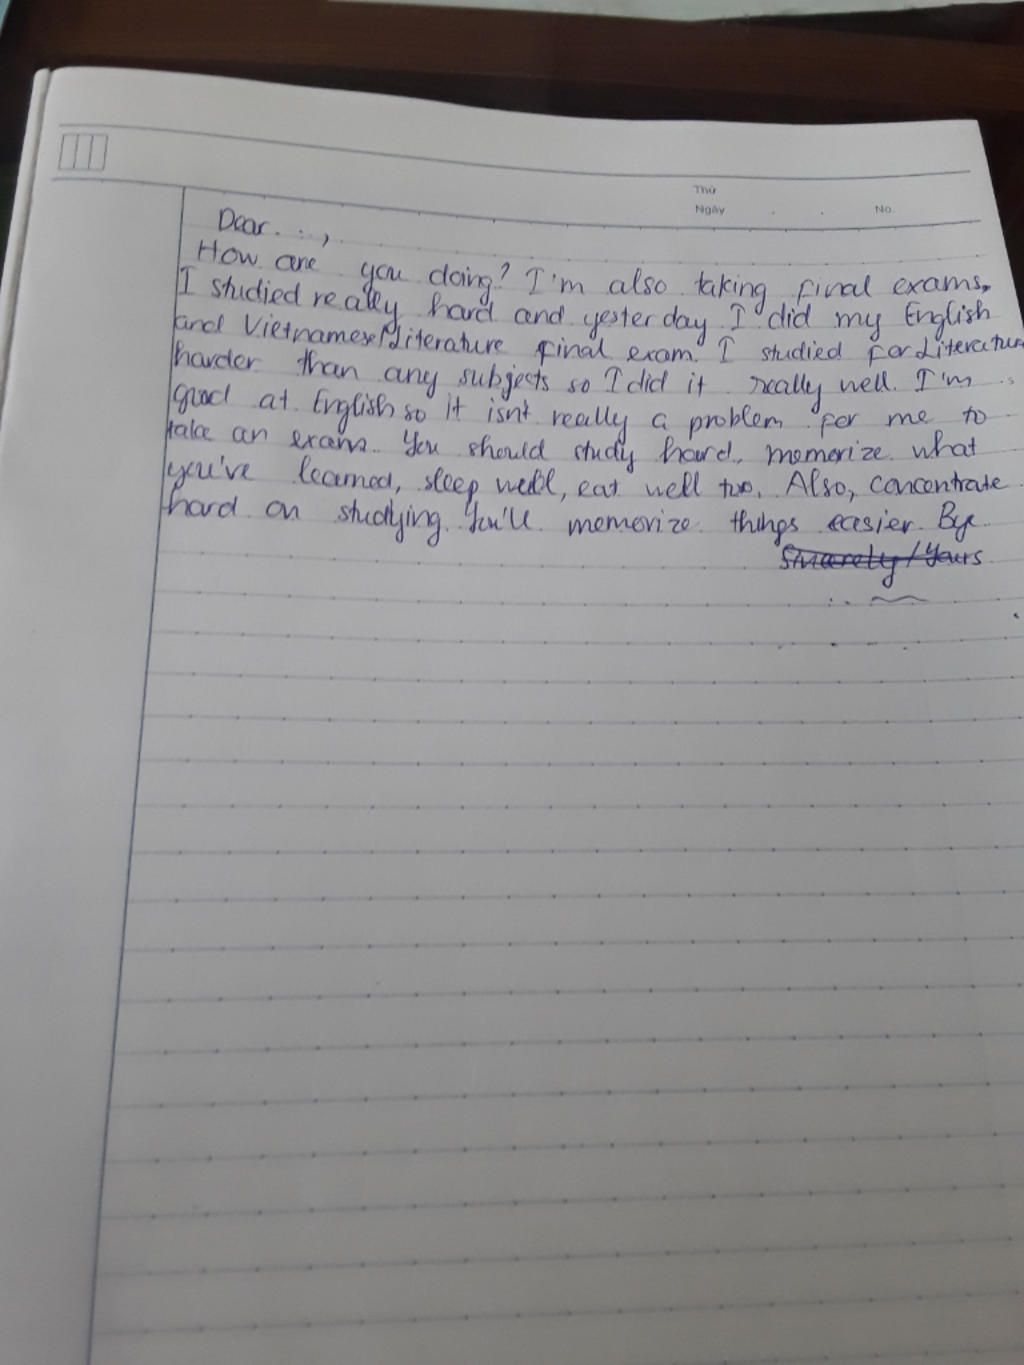 Thứ
Ngày . . No.
Dear...,
How are you doing? I'm also taking final exams,
I studied really hard and yesterday I did my English
and Vietnamese/Literature final exam. I studied for Literature
harder than any subjects so I did it really well. I'm
good at English so it isn't really a problem for me to
take an exam. You should study hard, memorize what
you've learned, sleep well, eat well too. Also, concentrate
hard on studying. You'll memorize things easier. Bye
Sincerely/Yours